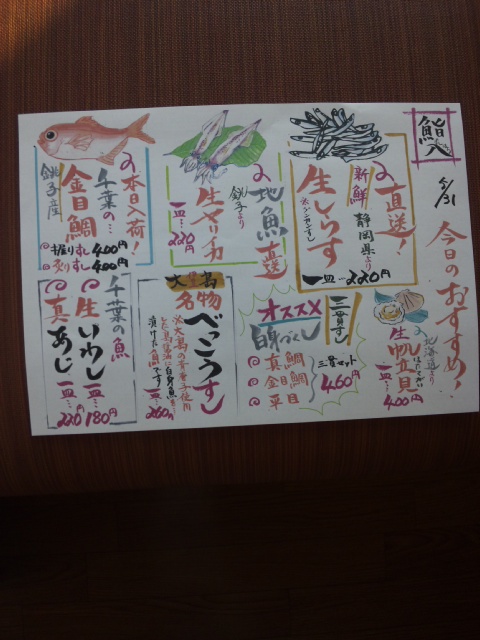 鮨八
5/31
今日の
おすすめ!
直送!
新鮮
静岡県より
生しらす
一皿…220円
地魚直送
銚子より
生ヤリイカ
一皿…220円
本日入荷!
千葉の…
金目鯛
銚子産
握りずし 400円
炙りずし 400円
北海道より
生帆立貝
一皿… 400円
三貫ずし
オススメ
白身づくし
真鯛
金目鯛
平目
三貫セット
460円
大島
名物
べっこうずし
※大島の青唐辛子使用
漬けた魚です
一皿… 260円
千葉の魚
生いわし
一皿… 180円
真あじ
一皿… 220円